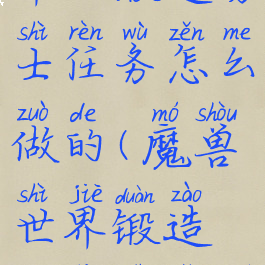 shì rèn wù zěn me
士任务怎么
zuò de mó shòu
做的(魔兽
shì jiè duàn zào
世界锻造